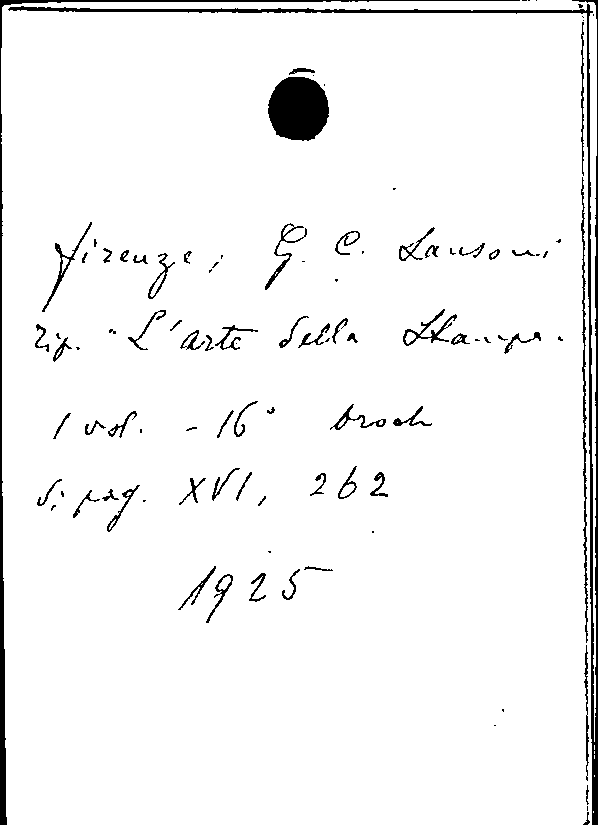 Firenze, G. C. Sansoni
Tip. "L'arte della Stampa.
1 vol. - 16° broch
di pag. XVI, 262
1925